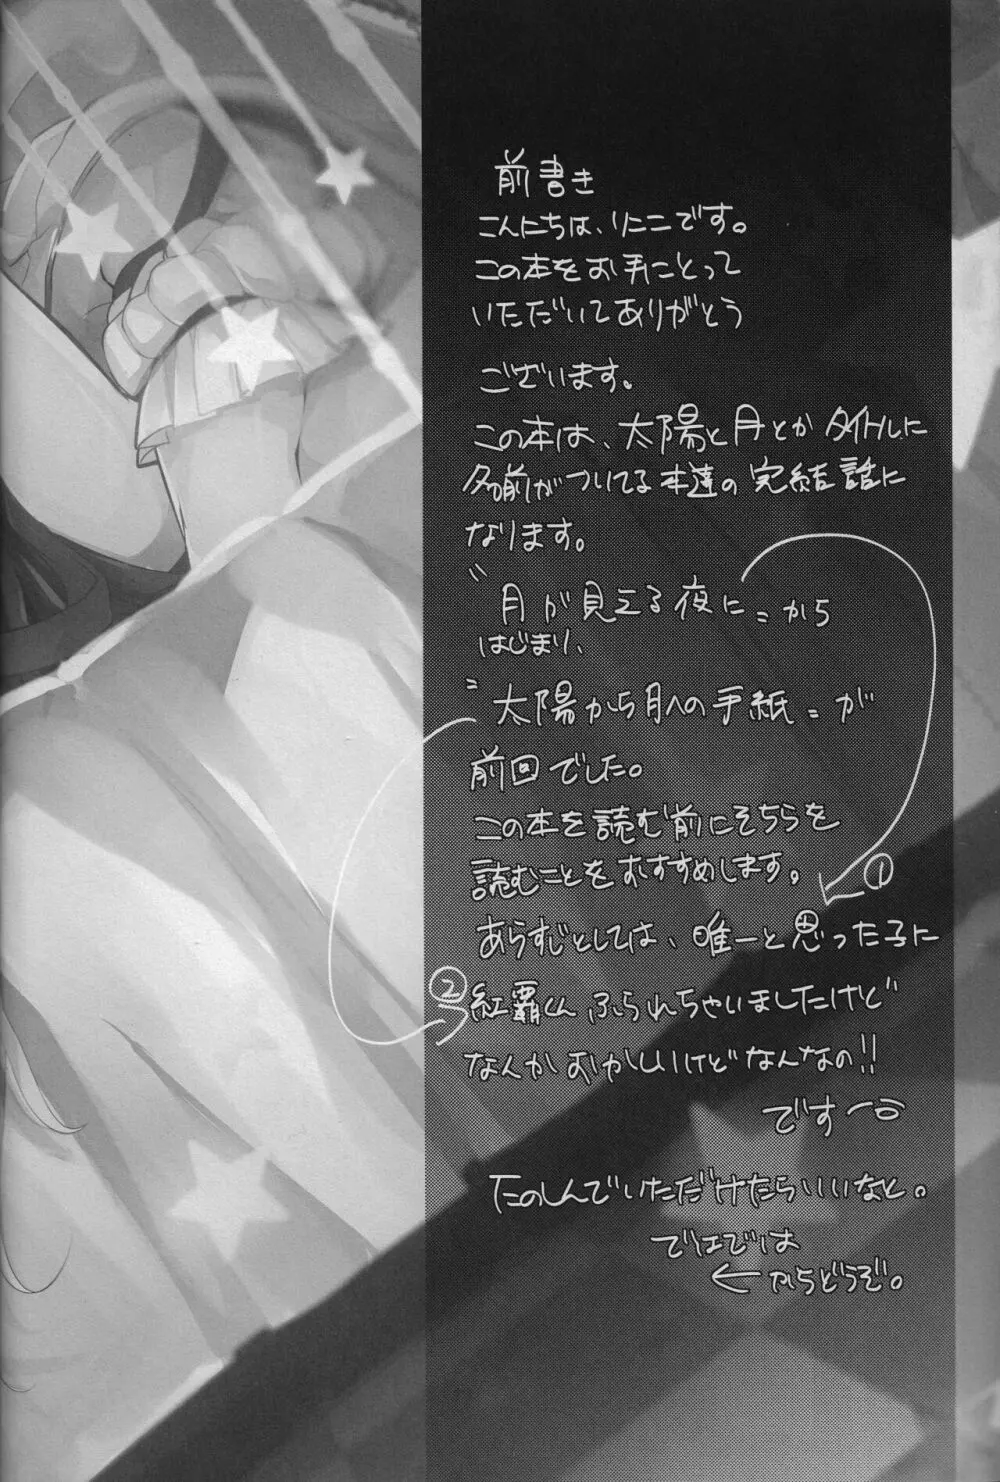 前書き
こんにちは、りにこです。
この本をお手にとって
いただいてありがとう
ございます。
この本は、太陽と月とかタイトルに
名前がついてる本達の完結話に
なります。
〃月が見える夜に〃から
はじまり、
〃太陽から月への手紙〃が
前回でした。
この本を読む前にそちらを
読むことをおすすめします。
①
あらすじとしては、唯一と思った子に
②
紅覇くんふられちゃいましたけど
なんかおかしいけどなんなの!!
です
たのしんでいただけたらいいなと。
ではでは
←からどうぞ。